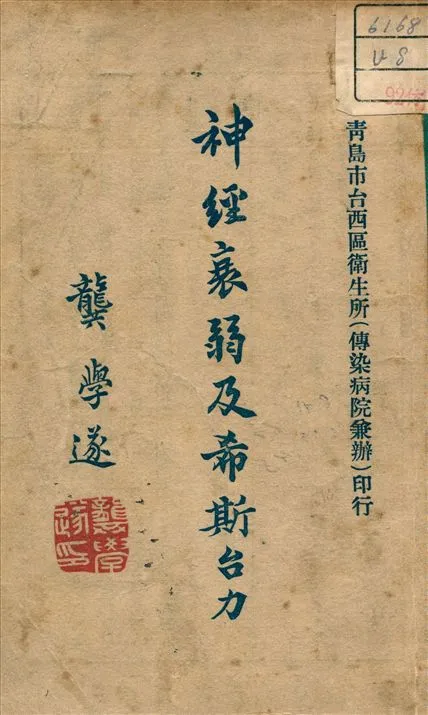 6168
青島市台西區衛生所(傳染病院兼辦)印行
神經衰弱及希斯台力
龔學遂
龔學遂印